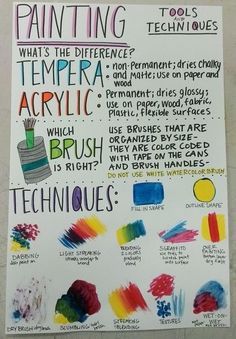 PAINTING
TOOLS
AND
TECHNIQUES
WHAT'S THE DIFFERENCE?
TEMPERA: non-Permanent; dries chalky
and matte; use on paper and
wood
ACRYLIC: Permanent; dries glossy;
use on paper, wood, fabric,
plastic, flexible surfaces
WHICH
BRUSH
IS RIGHT?
USE BRUSHES THAT ARE
ORGANIZED BY SIZE-
THEY ARE COLOR CODED
WITH TAPE ON THE CANS
AND BRUSH HANDLES-
DO NOT USE WHITE WATERCOLOR BRUSH
TECHNIQUES:
FILL IN SHAPE
OUTLINE SHAPE
DABBING
LIGHT STREAKING
BLENDING
2 COLORS
gradually
blend
SGRAFFITO
OVER
PAINTING
DRY BRUSH
SCUMBLING
STREAKING
+ BLENDING
TEXTURES
WET-ON-
WET